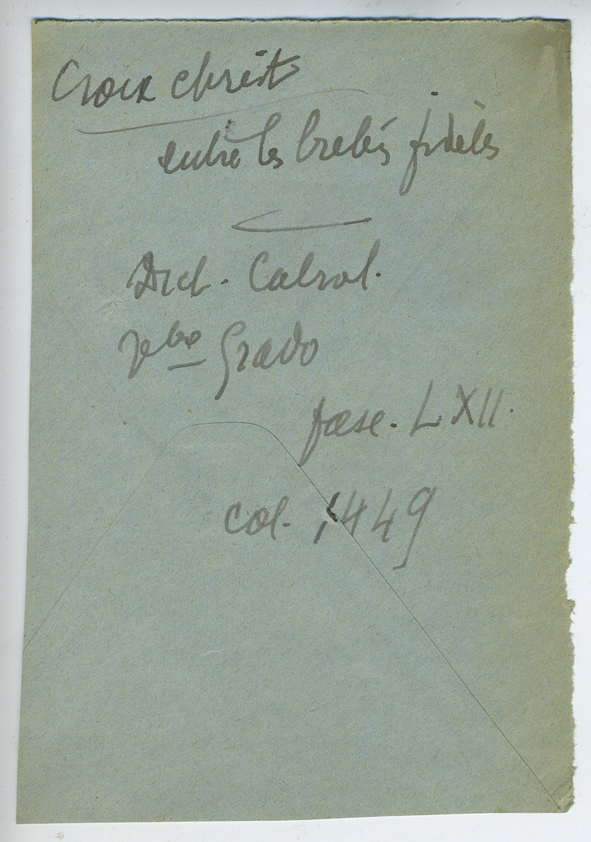 Croix christ
entre les brebis fidèles
Dict. Cabrol.
Vbo Grado
fasc. LXII.
col. 1449